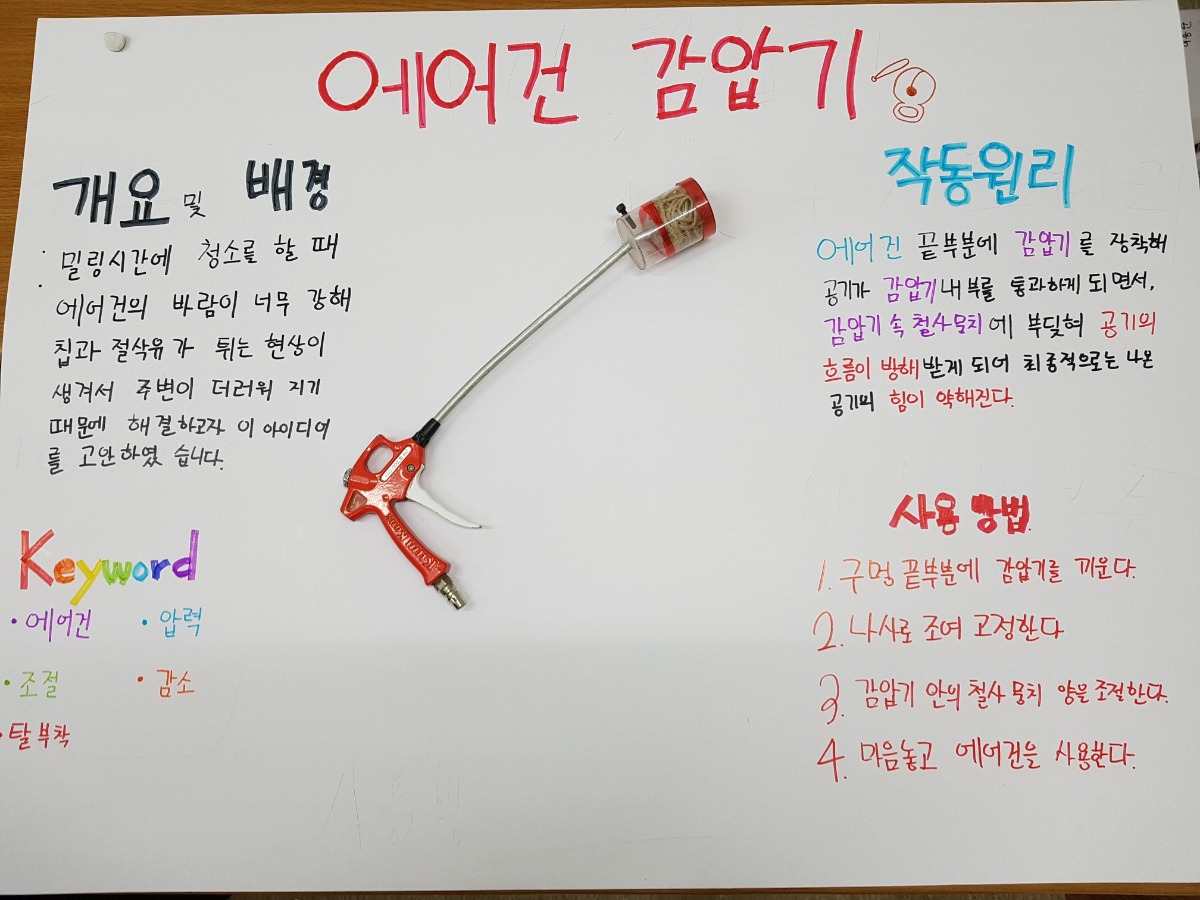 에어건 감압기
개요 및 배경
밀링시간에 청소를 할 때
에어건의 바람이 너무 강해
칩과 절삭유가 튀는 현상이
생겨서 주변이 더러워 지기
때문에 해결하고자 이 아이디어
를 고안하였습니다.
Keyword
· 에어건
· 압력
· 조절
· 감소
· 탈부착
작동원리
에어건 끝부분에 감압기를 장착해
공기가 감압기 내부를 통과하게 되면서,
감압기 속 철사뭉치에 부딪혀 공기의
흐름이 방해받게 되어 최종적으로는 나온
공기의 힘이 약해진다.
사용 방법
1. 구멍 끝부분에 감압기를 끼운다.
2. 나사로 조여 고정한다
3. 감압기 안의 철사 뭉치 양을 조절한다.
4. 마음놓고 에어건을 사용한다.